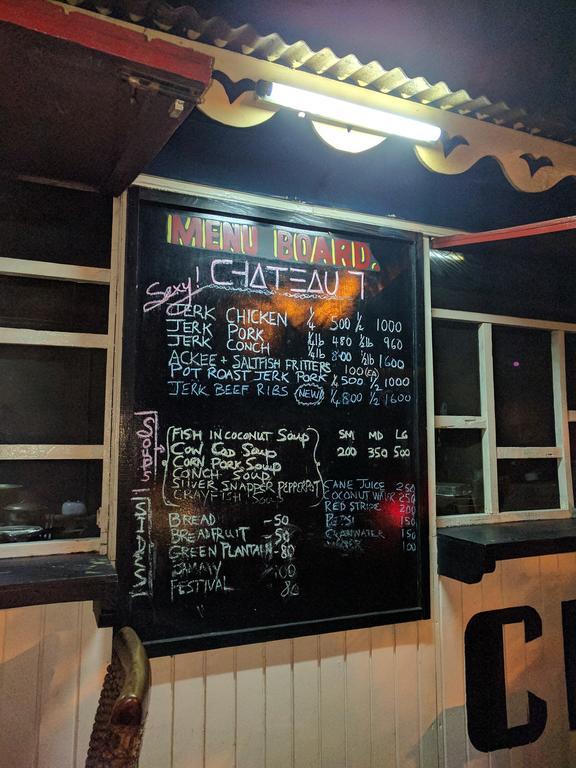 MENU BOARD.
Sexy! CHATEAU 7
JERK CHICKEN 1/4 500 1/2 1000
JERK PORK 1/4lb 480 1/2lb 960
JERK CONCH 1/4lb 800 1/2lb 1600
ACKEE + SALTFISH FRITTERS 100 (EA)
POT ROAST JERK PORK 1/4 500 1/2 1000
JERK BEEF RIBS NEW 1/4 800 1/2 1600
SOUPS
SM MD LG
FISH IN COCONUT SOUP 200 350 500
COW COD SOUP
CORN PORK SOUP
CONCH SOUP
SILVER SNAPPER PEPPERPOT
CRAYFISH SOUP
CANE JUICE 250
COCONUT WATER 250
RED STRIPE 200
PEPSI 150
CRANWATER 150
100
BREAD -50
BREADFRUIT -50
GREEN PLANTAIN -80
100
FESTIVAL 80
C